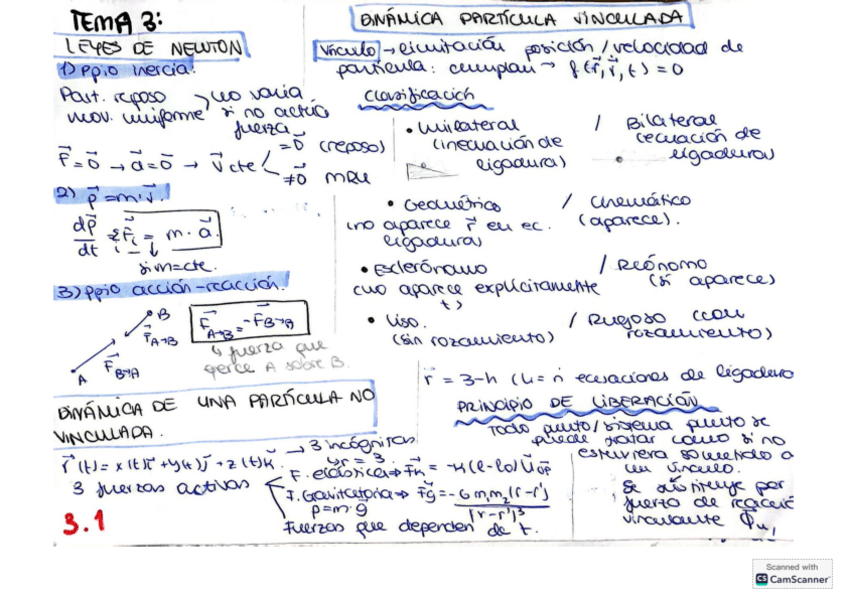 TEMA 3:
LEYES DE NEWTON
1) Ppio inercia:
Part. reposo
mov. uniforme > no varía si no actúa fuerza
F⃗ = 0⃗ → a⃗ = 0⃗ → V⃗ cte < = 0⃗ (reposo)
≠ 0⃗ MRU
2) p⃗ = m·v⃗.
dp⃗/dt ΣF⃗i = m · a⃗
si m=cte.
3) Ppio acción-reacción.
B
F⃗A→B
F⃗B→A
A
F⃗A→B = -F⃗B→A
↳ fuerza que
ejerce A sobre B.
DINÁMICA DE UNA PARTÍCULA NO
VINCULADA.
r⃗(t) = x(t)i⃗ + y(t)j⃗ + z(t)k⃗ → 3 incógnitas
r = 3.
3 fuerzas activas
F. elástica → F⃗k = -k(l-l0) u⃗OP
F. Gravitatoria → F⃗g = -G m1 m2 (r-r')/|r-r'|³
p=m·g⃗
Fuerzas que dependen de t.
3.1
DINÁMICA PARTÍCULA VINCULADA
Vínculo → limitación posición/velocidad de
partícula: cumplan → f(r⃗, ṙ⃗, t) = 0
Clasificación
• Unilateral / Bilateral
(inecuación de (ecuación de
ligadura) ligadura)
• Geométrico / Cinemático
(no aparece ṙ⃗ en ec. (aparece).
ligadura)
• Esclerónomo / Reónomo
(no aparece explícitamente (sí aparece)
t)
• Liso. / Rugoso (con
(sin rozamiento) rozamiento)
r = 3-h (h = nº ecuaciones de ligadura
PRINCIPIO DE LIBERACIÓN
Todo punto/sistema punto se
puede tratar como si no
estuviera sometido a
un vínculo.
Se sustituye por
fuerza de
vinculante Φ⃗
Scanned with
CS CamScanner